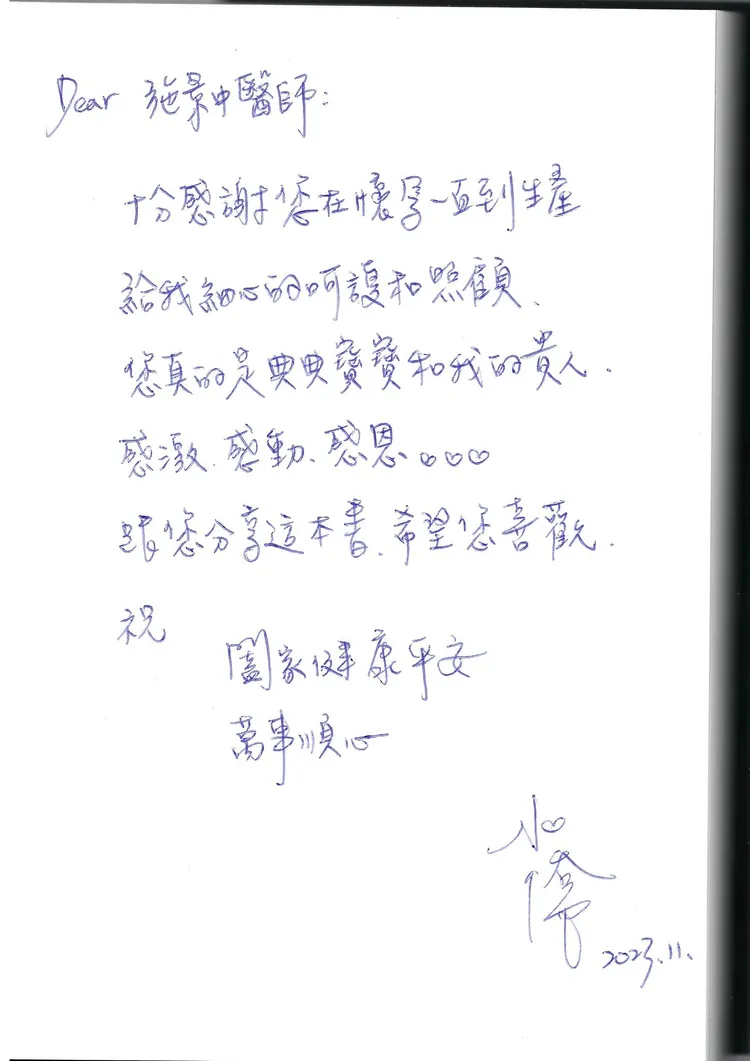 Dear 施景中醫師:
十分感謝您在懷孕一直到生產
給我細心的呵護和照顧、
您真的是典典寶寶和我的貴人.
感激、感動、感恩♡♡♡
跟您分享這本書、希望您喜歡.
祝
闔家健康平安
萬事順心
2023.11.